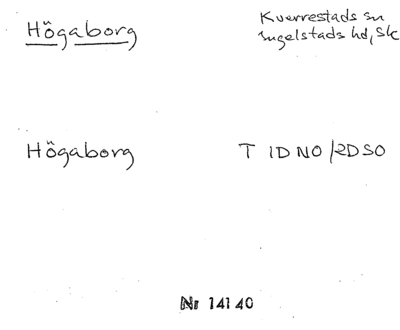 Högaborg
Kverrestads sn
Ingelstads hd, Sk
Högaborg
T 1D NO/2D SO
Nr 14140